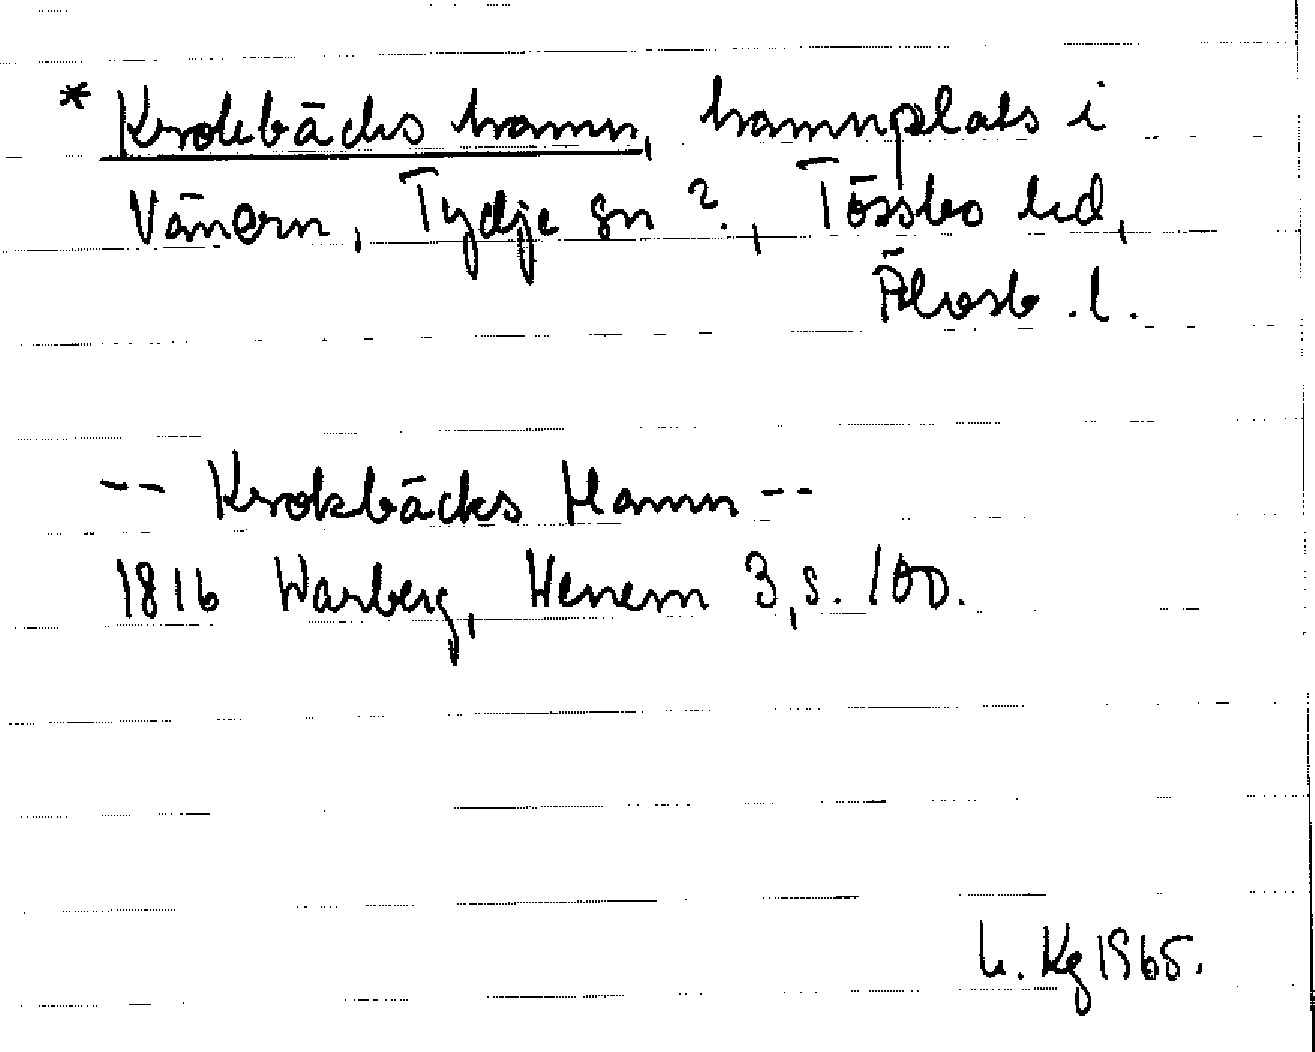 * Krokbäcks hamn, hamnplats i
Vänern, Tydje sn ?., Tössbo hd,
Älvsb. l.
-- Krokbäcks Hamn --
1816 Warberg, Wenern 3, s. 100.
L. Kg 1965.